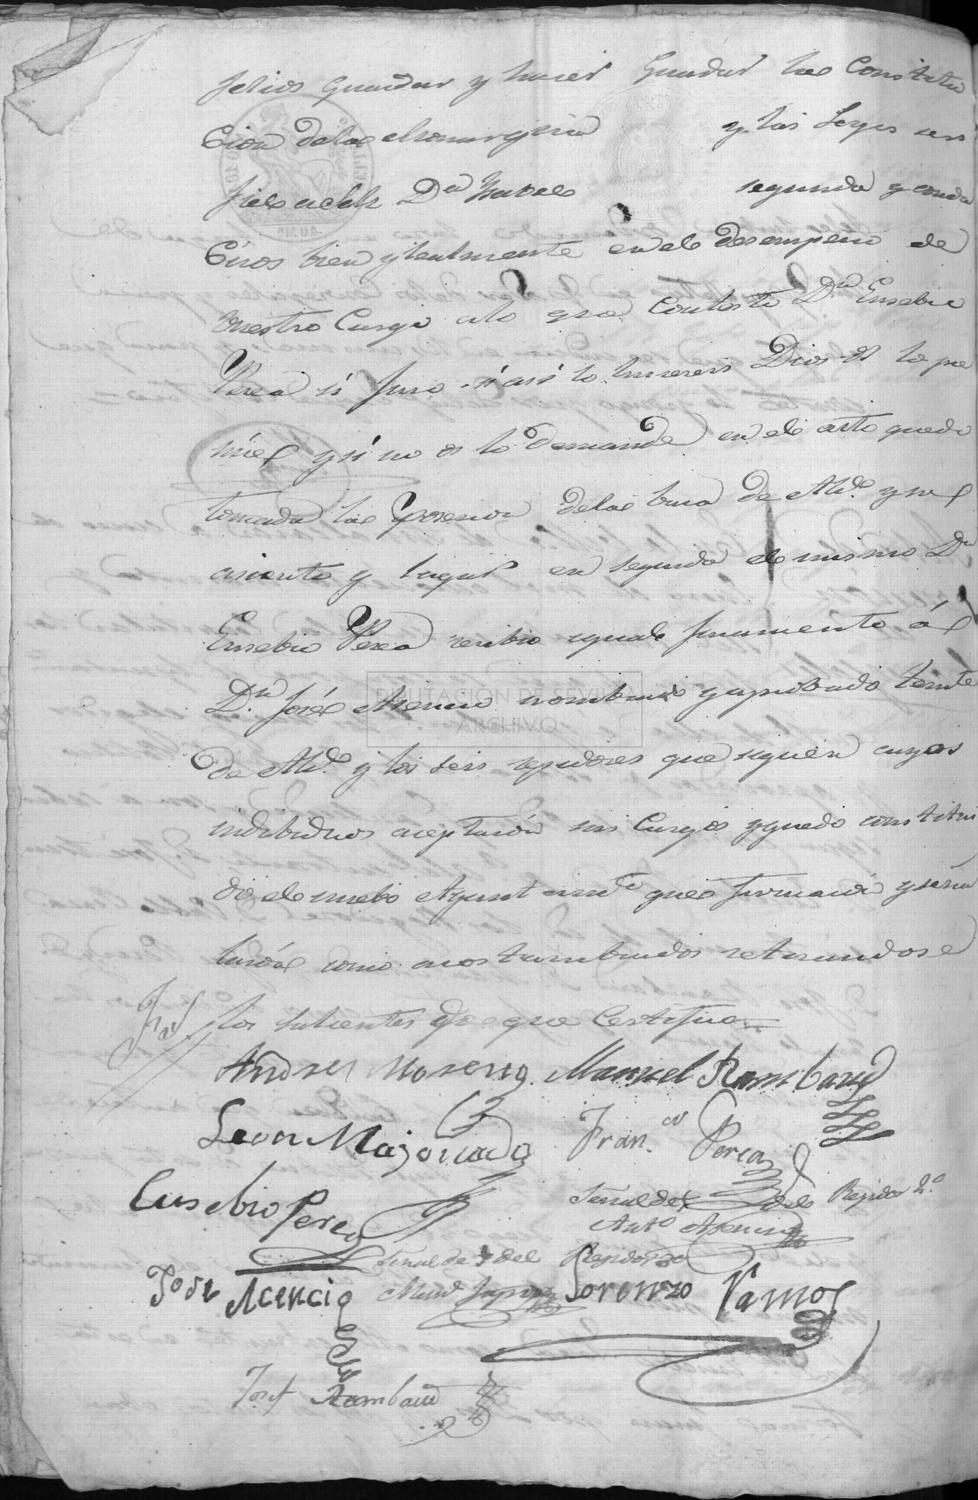 gelios guardar y hacer guardar la Constitu
cion de la Monarquia y las Leyes ser
fiel a dha Dª Ysabel segunda y condu
ciros bien y lealmente en el desempeño de
vuestro Cargo a lo que contesto Dn Eusebio
Perea si Juro si asi lo hiciereis Dios os lo pre
mie y si no os lo demande en el acto quedo
tomada la posesion de la bara de Alde y su
asiento y lugar en seguida el mismo Dn
Eusebio Perea recibio ygual juramento á
Dn José Asencio nombrado y aprobado teniente
de Alde y los seis rejidores que siguen cuyos
indibiduos aceptaron sus Cargos y quedo constitui
do el nuebo Ayuntamto que firmará y seña
lará como acostumbrados retirandose
los salientes de que Certifico
Andres Moreno Manuel Rambaud
Leon Majonado Fran.co Perea
Eusebio Perea Señal del Rejidor 2º
Antº Asencio
Señal de del Rejidor 3º
Jose Acencio Manl Lorenzo Ramos
Josef Rambaud
DIPUTACIÓN DE SEVILLA
ARCHIVO